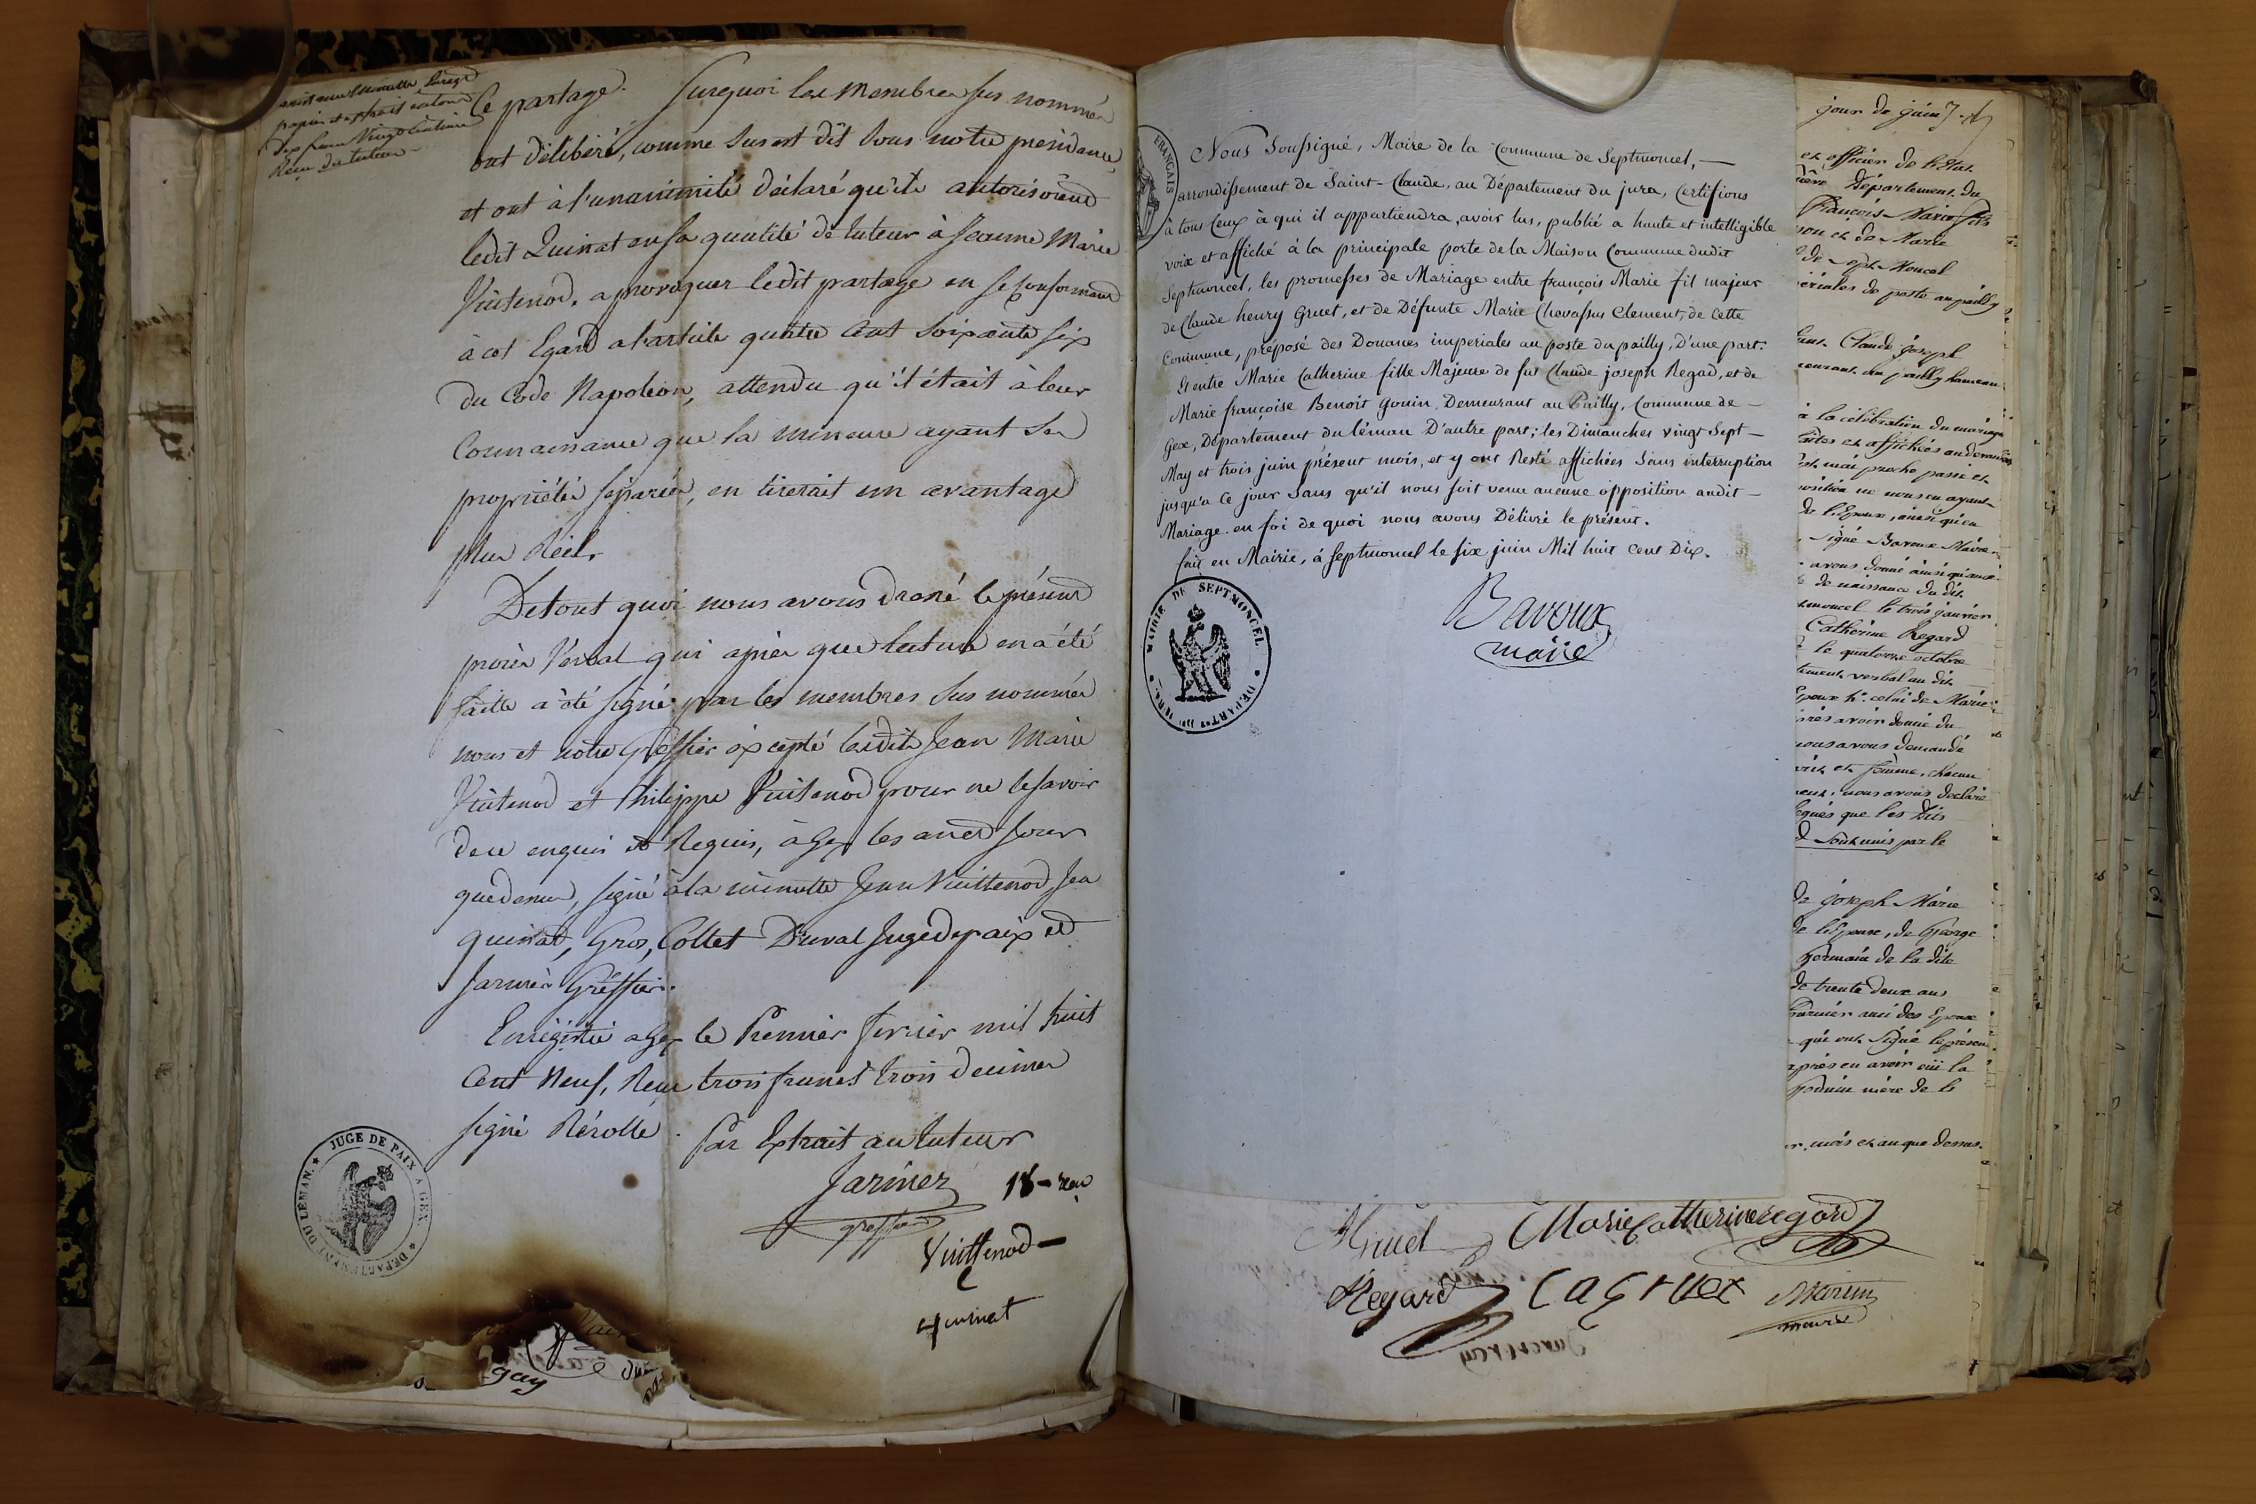 Le partage. Surquoi les Membres sus nommés
ont délibéré, comme sus est dit sous notre présidence
et ont à l'unanimité déclaré qu'ils autorisoient
ledit Quinat en sa qualité de tuteur à Jeanne Marie
Vuitenod, a provoquer ledit partage en se conformant
à cet Egard a l'article quatre Cent soixante six
du Code Napoléon, attendu qu'il était à leur
Connaissance que la mineure ayant ses
propriétés séparées, en tirerait un avantage
plus Réel.
De tout quoi nous avons dressé le présent
procès Verbal qui après que lecture en a été
faite a été signé par les membres sus nommés
nous et notre Greffier excepté lesdits Jean Marie
Vuitenod et Philippe Vuitenod pour ne le savoir
de ce enquis et Requis, à Gex les an et jour
que devant, signé à la minutte Jean Vuittenod, Jea
quinat, Gros, Collet Duval Juge de paix et
Jarinier Gréffier.
Enrégistré a Gex le Premier fevrier mil huit
Cent Neuf, Reçu trois francs trois decimes
signé Rérolle.
Par Extrait au tuteur
Jarinier
greffier
Vuittenod
quinat
JUGE DE PAIX A GEX ★ DEPARTEMENT DU LEMAN ★
gay
FRANÇAIS
Nous Soussigné, Maire de la Commune de Septmoncel, —
arrondissement de Saint-Claude, au Département du jura, Certifions
à tous Ceux à qui il appartiendra, avoir lus, publié a haute et intelligible
voix et affiché à la principale porte de la Maison Commune dudit
Septmoncel, les promesses de Mariage entre françois Marie fil majeur
de Claude henry Gruet, et de Défunte Marie Chavassus Clement, de cette
Commune, préposé des Douanes imperiales au poste du pailly, D'une part.
Et entre Marie Catherine fille Majeure de fut Claude joseph Regad, et de
Marie françoise Benoit Gouin Demeurant au Pailly, Commune de —
Gex, Département du léman D'autre part; les Dimanches vingt Sept —
May et trois juin présent mois, et y ont Resté affichées Sans interruption
jusqu'a Ce jour Sans qu'il nous soit venu aucune opposition audit —
Mariage en foi de quoi nous avons Délivré le présent.
fait en Mairie, à Septmoncel le six juin Mil huit Cent Dix.
Bavoux
maire
MAIRIE DE SEPTMONCEL ★ DEPART. DU JURA ★
jour de juin
et officier de l'Etat
Département du
François Marie fils
et de Marie
de Sept Moncel
de poste au pailly
Claude joseph
au pailly hameau
à la célébration du mariage
et affichées au devant
mai proche passé et
ne nous en ayant
de l'Epoux, ainsi qu'en
signé Bavoux Maire
avons donné
de naissance du dit
le trois janvier
Catherine Regard
le quatorze octobre
verbal au dit
celui de Marie
après avoir donné
nous avons demandé
et femme, chacun
nous avons declaré
que les dits
sont unis par le
de joseph Marie
de l'Epoux, de George
germain de la dite
de trente deux ans
ami des Epoux
qui ont signé le présent
après en avoir eüi la
mère de la
mois et an que dessus.
Gruet Marie Catherine regard
Regard CAGruet
maire